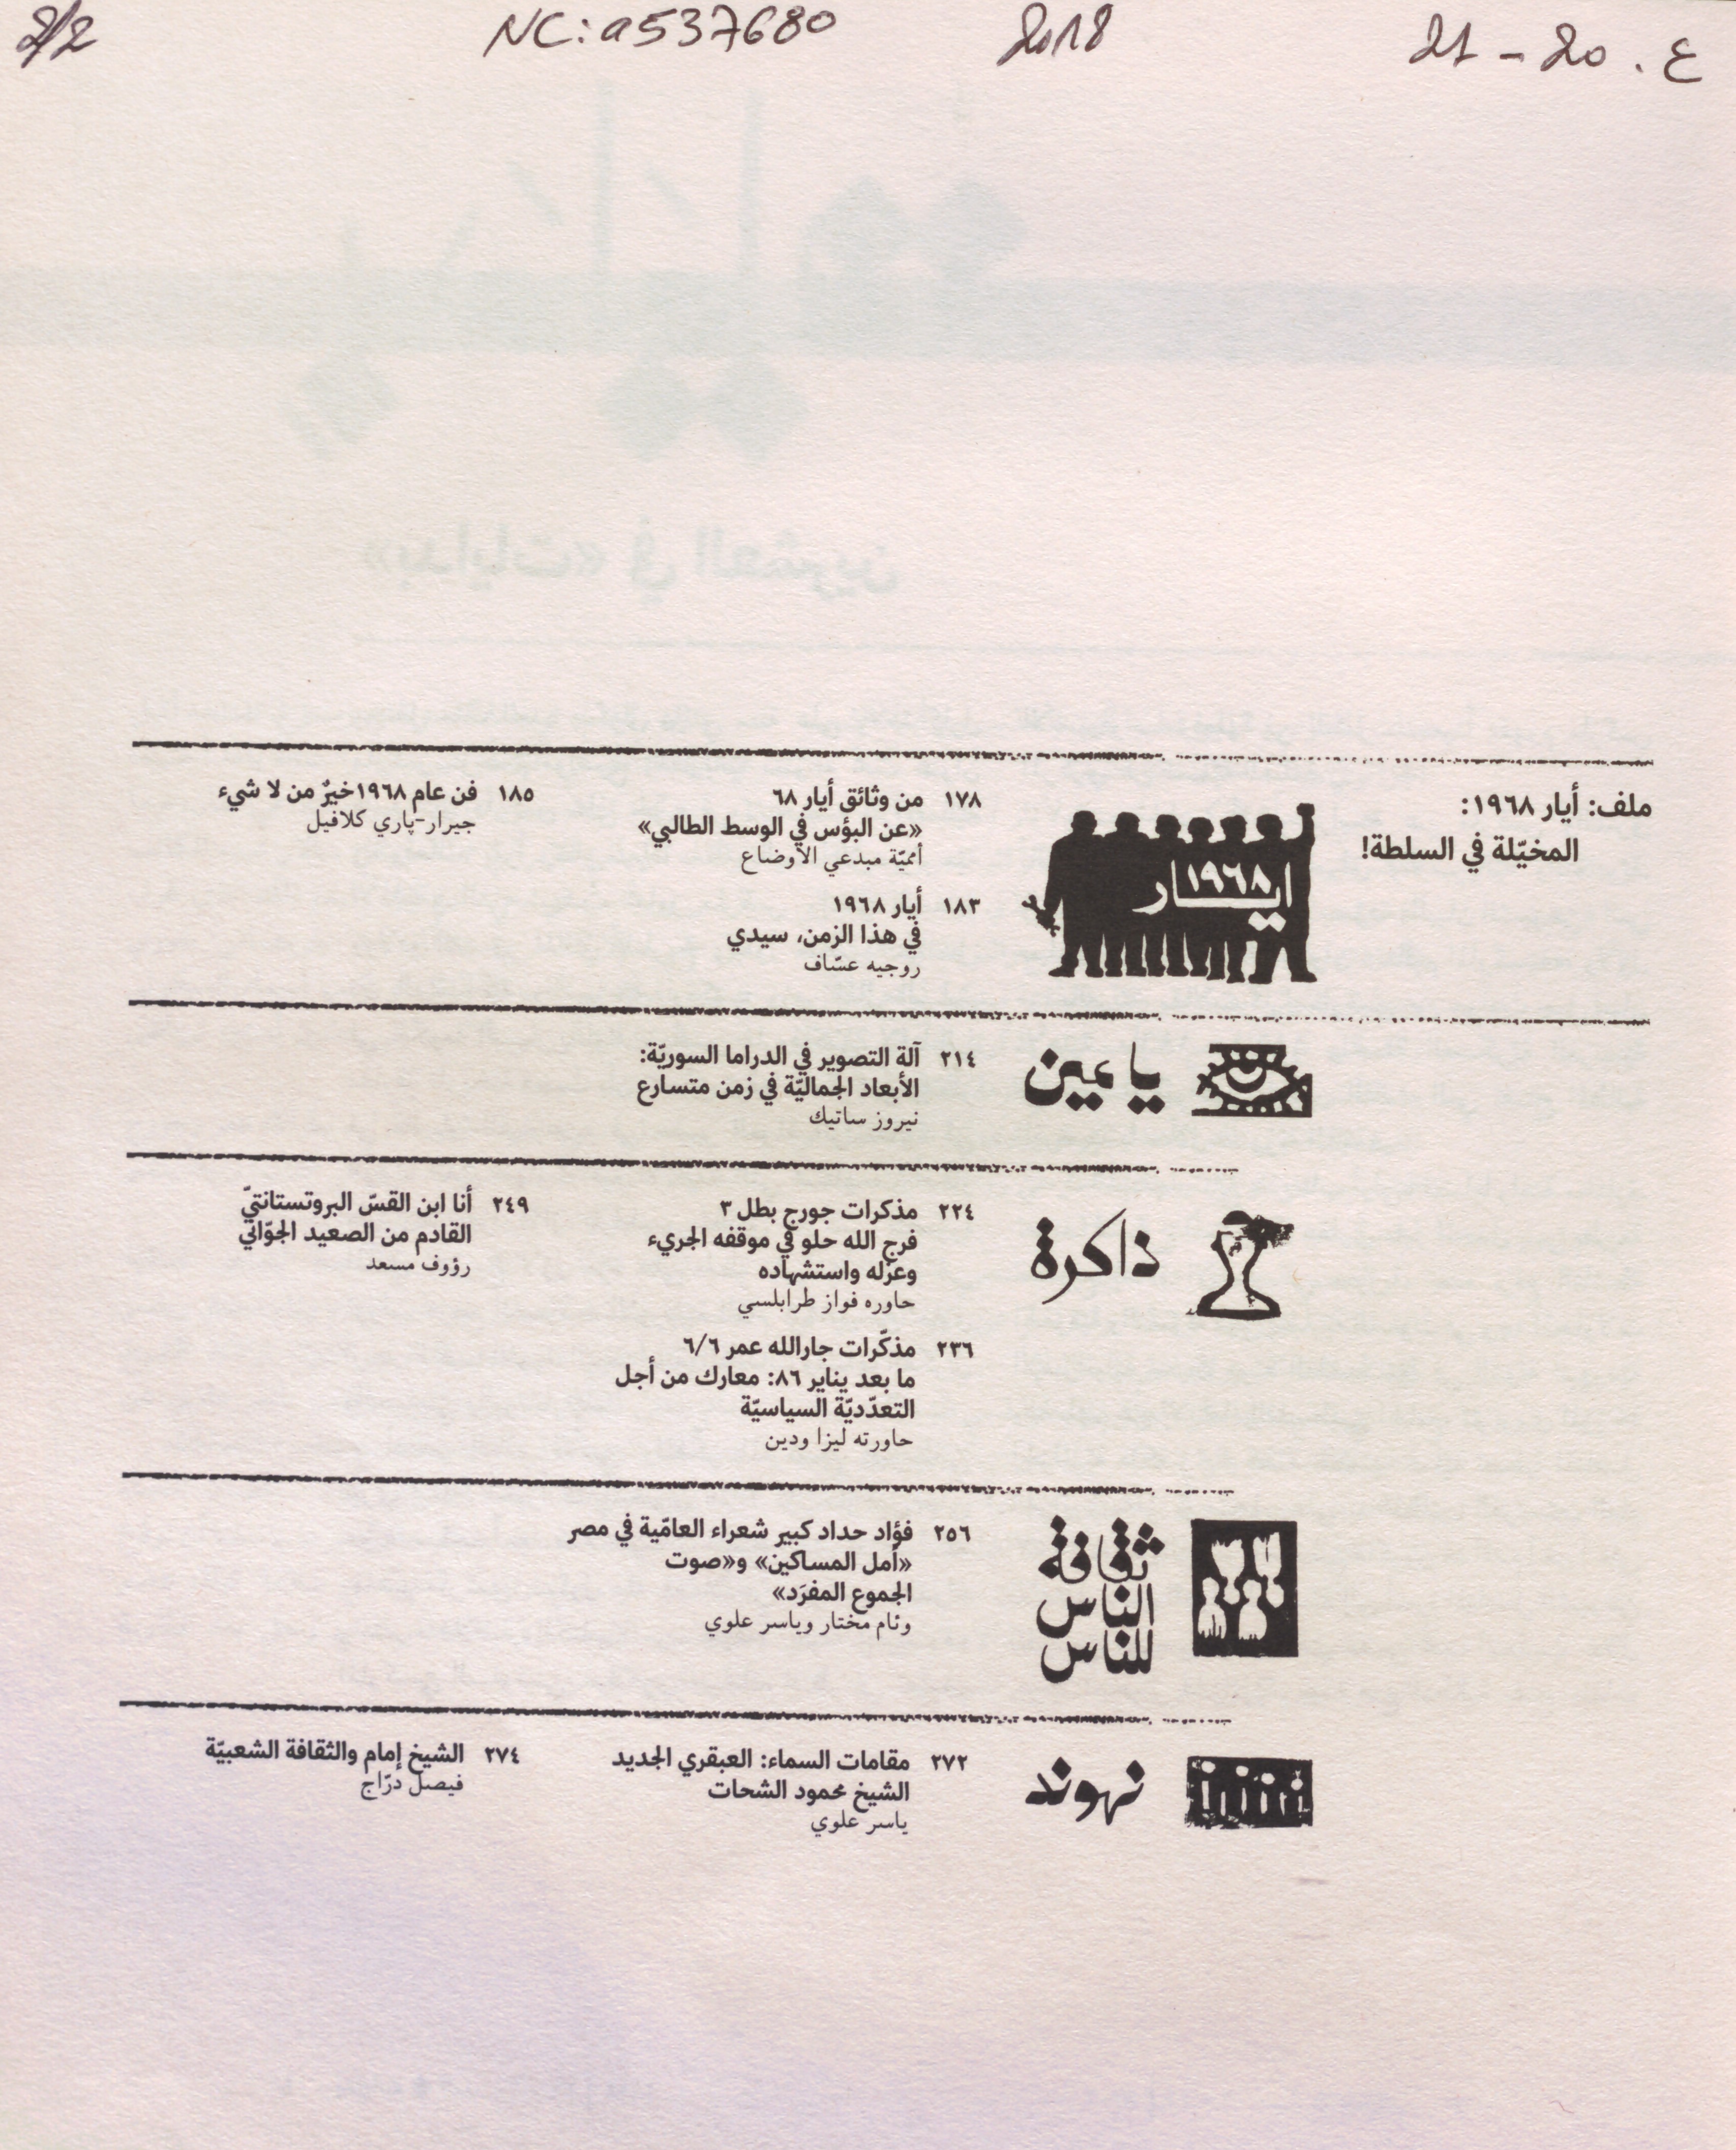 ع. 20 - 21
2018
NC: a537680
2/2
ملف: أيار ١٩٦٨:
المخيّلة في السلطة!
ايار ١٩٦٨
١٧٨ من وثائق أيار ٦٨
«عن البؤس في الوسط الطالبي»
أمميّة مبدعي الأوضاع
١٨٣ أيار ١٩٦٨
في هذا الزمن، سيدي
روجيه عسّاف
١٨٥ فن عام ١٩٦٨خيرٌ من لا شيء
جيرار-پاري كلافيل
يا عين
٢١٤ آلة التصوير في الدراما السوريّة:
الأبعاد الجماليّة في زمن متسارع
نيروز ساتيك
ذاكرة
٢٢٤ مذكرات جورج بطل ٣
فرج الله حلو في موقفه الجريء
وعزله واستشهاده
حاوره فواز طرابلسي
٢٣٦ مذكّرات جارالله عمر ٦/٦
ما بعد يناير ٨٦: معارك من أجل
التعدّديّة السياسيّة
حاورته ليزا ودين
٢٤٩ أنا ابن القسّ البروتستانتيّ
القادم من الصعيد الجوّاني
رؤوف مسعد
ثقافة
الناس
للناس
٢٥٦ فؤاد حداد كبير شعراء العامّية في مصر
«أمل المساكين» و«صوت
الجموع المفرَد»
وئام مختار وياسر علوي
نهوند
٢٧٢ مقامات السماء: العبقري الجديد
الشيخ محمود الشحات
ياسر علوي
٢٧٤ الشيخ إمام والثقافة الشعبيّة
فيصل درّاج